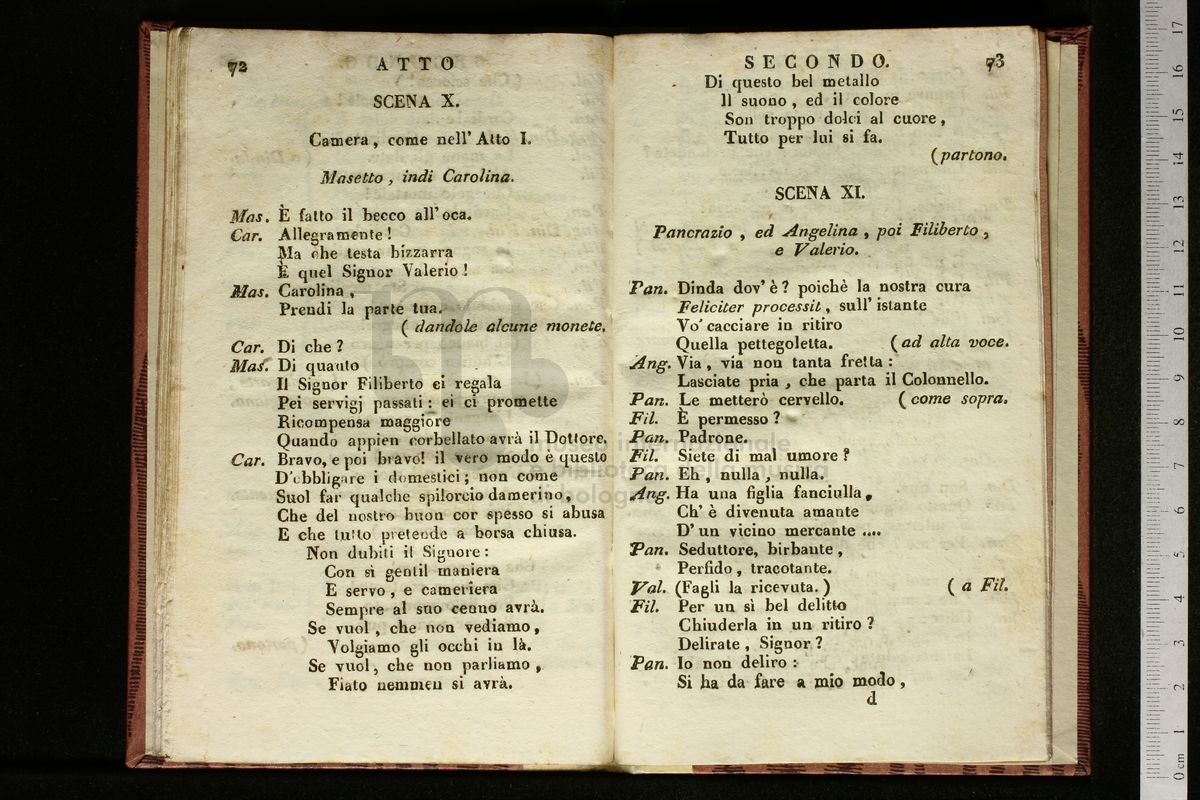 72
ATTO
SCENA X.
Camera, come nell' Atto I.
Masetto, indi Carolina.
Mas. È fatto il becco all'oca.
Car. Allegramente!
Ma che testa bizzarra
È quel Signor Valerio!
Mas. Carolina,
Prendi la parte tua.
( dandole alcune monete.
Car. Di che?
Mas. Di quanto
Il Signor Filiberto ci regala
Pei servigj passati: ei ci promette
Ricompensa maggiore
Quando appien corbellato avrà il Dottore.
Car. Bravo, e poi bravo! il vero modo è questo
D'obbligare i domestici; non come
Suol far qualche spilorcio damerino,
Che del nostro buon cor spesso si abusa
E che tutto pretende a borsa chiusa.
Non dubiti il Signore:
Con sì gentil maniera
E servo, e cameriera
Sempre al suo cenno avrà.
Se vuol, che non vediamo,
Volgiamo gli occhi in là.
Se vuol, che non parliamo,
Fiato nemmen si avrà.
SECONDO.
73
Di questo bel metallo
Il suono, ed il colore
Son troppo dolci al cuore,
Tutto per lui si fa.
(partono.
SCENA XI.
Pancrazio, ed Angelina, poi Filiberto,
e Valerio.
Pan. Dinda dov'è? poichè la nostra cura
Feliciter processit, sull'istante
Vo' cacciare in ritiro
Quella pettegoletta. (ad alta voce.
Ang. Via, via non tanta fretta:
Lasciate pria, che parta il Colonnello.
Pan. Le metterò cervello. (come sopra.
Fil. È permesso?
Pan. Padrone.
Fil. Siete di mal umore?
Pan. Eh, nulla, nulla.
Ang. Ha una figlia fanciulla,
Ch' è divenuta amante
D' un vicino mercante ....
Pan. Seduttore, birbante,
Perfido, tracotante.
Val. (Fagli la ricevuta.) ( a Fil.
Fil. Per un sì bel delitto
Chiuderla in un ritiro?
Delirate, Signor?
Pan. Io non deliro:
Si ha da fare a mio modo,
d
museo internazionale
e biblioteca della musica
bologna
0 cm 1 2 3 4 5 6 7 8 9 10 11 12 13 14 15 16 17